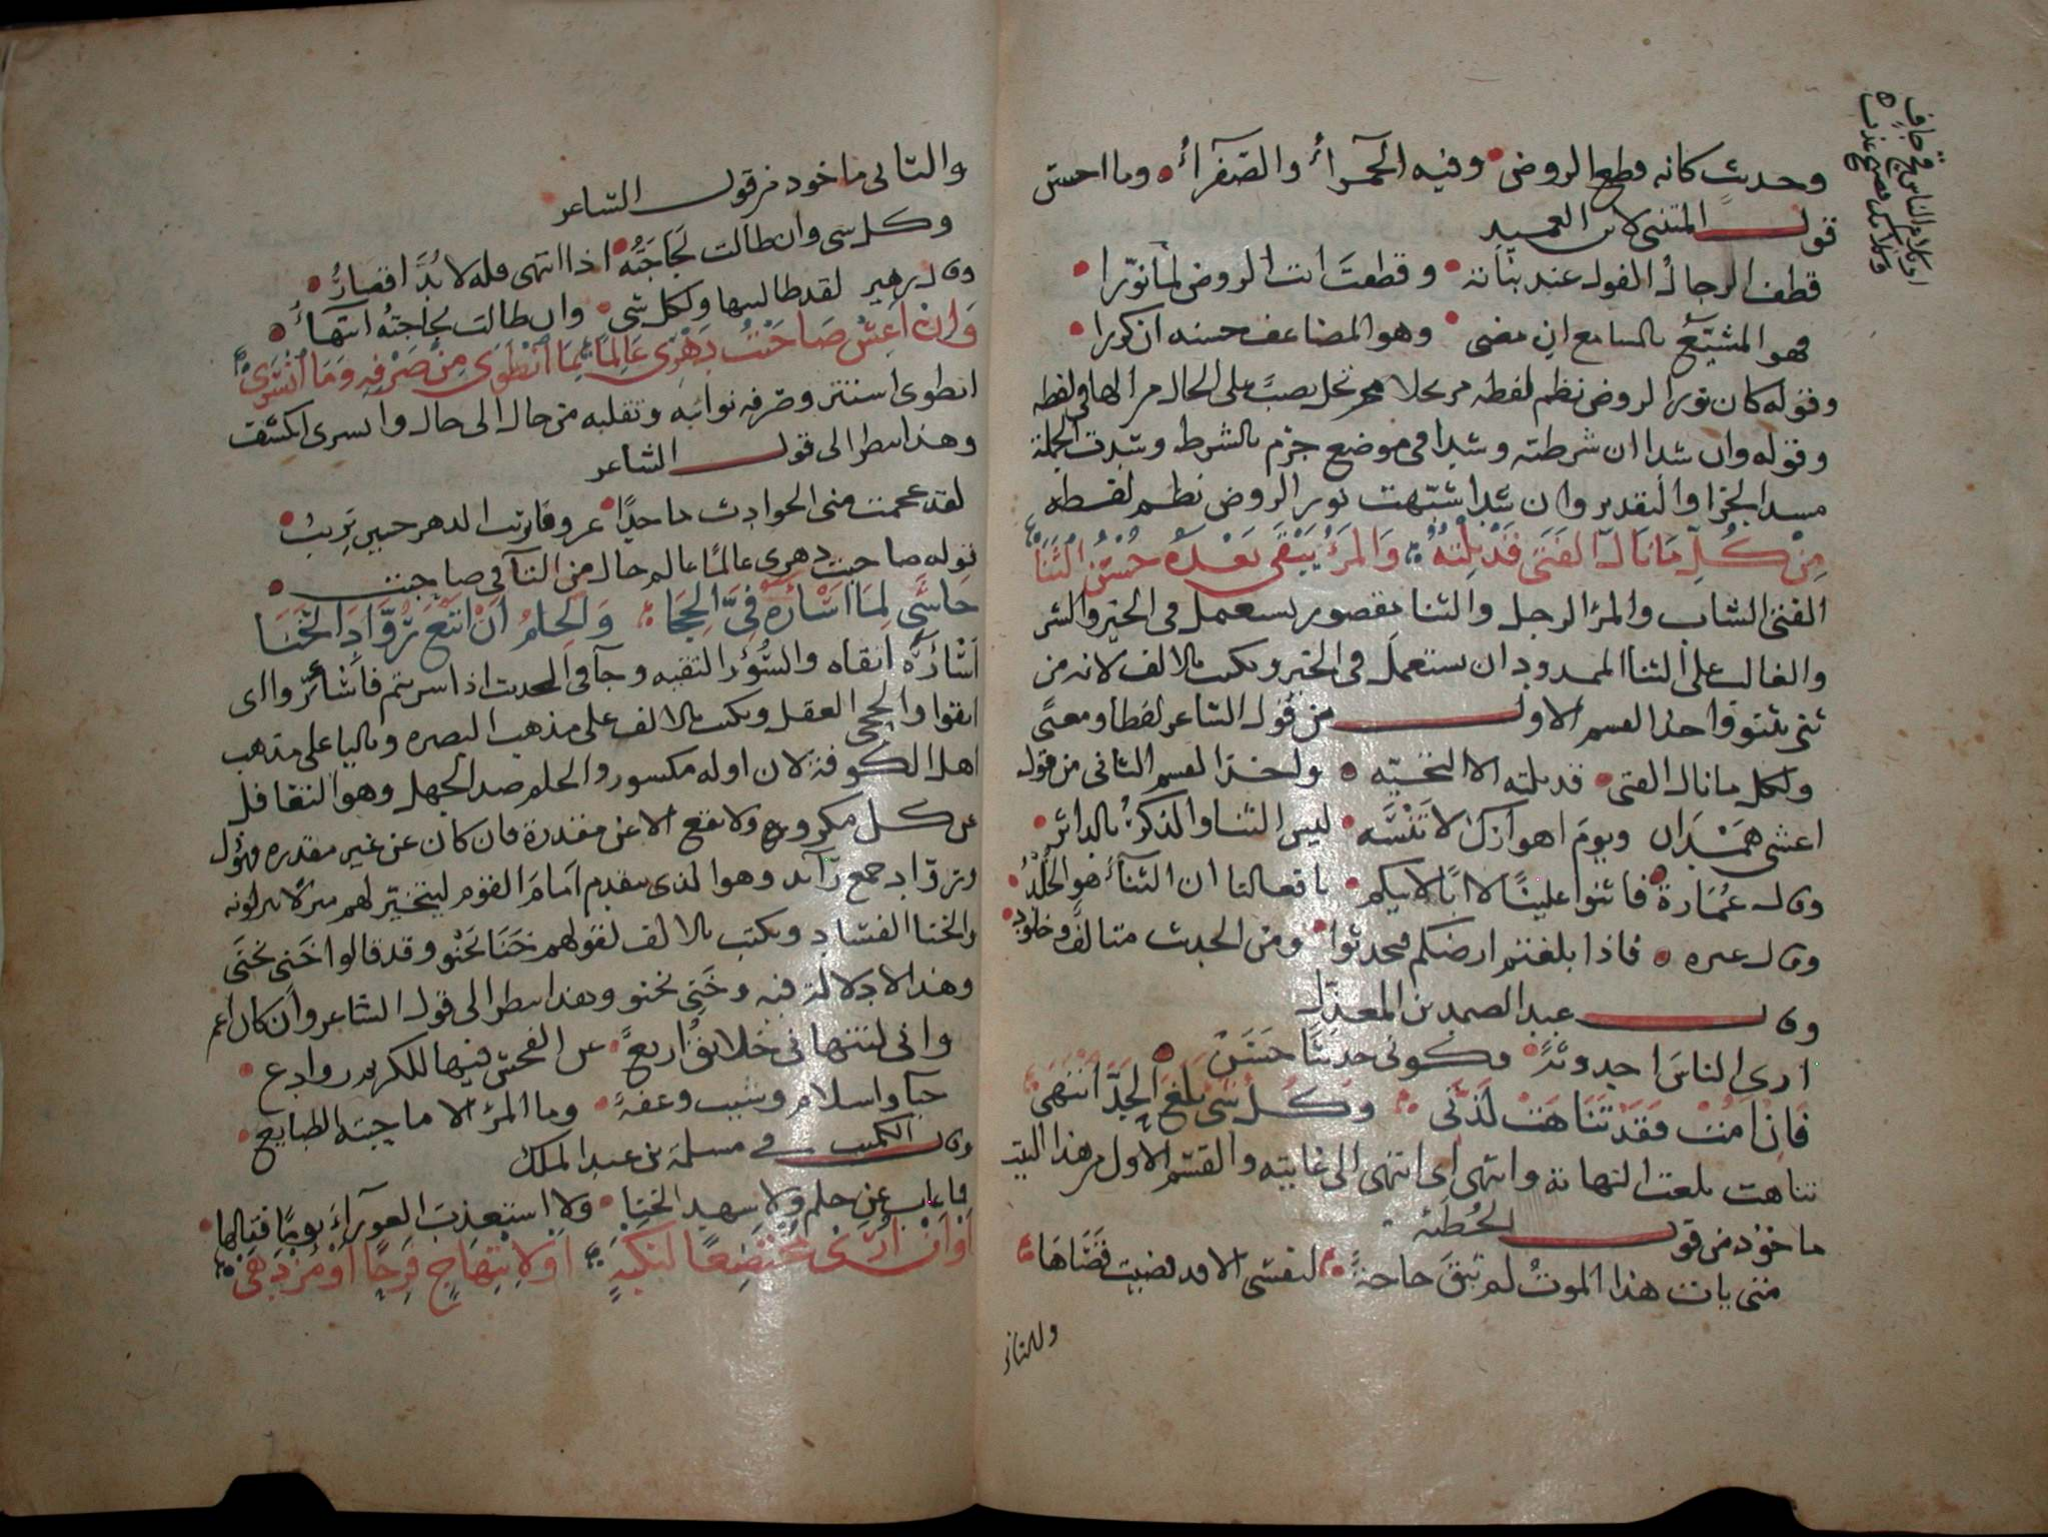 وحديث كانه قطع الروض وفيه الحمرآءُ والصفرآءُ وما احسن
قول المتنبي لابن العميد
قطف الرجالُ القولَ عند نباته وقطعتَ انت الروض لمانوّرا
فهو المشيّعُ بالمسامع ان مضى وهو المضاعف حسنه ان كررا
وقوله كان نور الروض نظم لفظه مرتجلا مرتجل نصبٌ على الحال من الهآ في لفظه
وقوله وان شدا ان شرطته وشدا في موضع جزم بالشرط وسدت الجملة
مسد الجزا والتقدير وان شدا شبّهت نور الروض نظم لفظه
مِنْ كُلِّ مَا نَالَ الفَتَى قَدْ نِلْتُهُ وَالمَرْءُ يَبْقَى بَعْدَهُ حُسْنُ الثَنَا
الفتى الشاب والمرا الرجل والثنا مقصور يستعمل في الخير والشر
والغالب على الثنا الممدود ان يستعمل في الخير ويكتب بالالف لانه من
ثنى يثنو واخذ القسم الاول من قول الشاعر لفظا ومعنًى
ولكل ما نال الفتى قد نلته الا التحيّه واخذ القسم الثاني من قول
اعشى همْدان ويوم اهوازك لا تنْسَه ليس الثنا والذكرُ بالداثر
وقال عُمَارة فاثنوا علينا لا ابا لابيكم بافعالنا ان الثنآءُ هو الخُلْدُ
وقال غيره فاذا بلغتم ارضكم فتحدثوا ومن الحديث متالفٌ وخلود
وقال عبد الصمد بن المعذل
ارى الناسَ احدوثةً فكوني حديثًا حسَنْ
فَاِنْ اَمُتْ فَقَدْ تَنَاهَتْ لَذَّتِي وَكُلُّ شَيْءٍ بَلَغَ الحَدَّ انْتَهَى
تناهت بلغت النهاية وانتهى اى انتهى الى غايته والقسم الاول من هذا البيت
ماخوذ من قول الحُطَئة
متى يات هذا الموتُ لم تبق حاجةً لنفسي الا قد قضيت قضاها
والثانى ماخوذ من قول الشاعر
وكل شى وان طالت لَجَاجَتُه اذا انتهى فله لا بُدَّ اقصارُ
وقال زهير لقد طالبتها ولكل شى وان طالت لجاجتهُ انتهآءُ
وَاِنْ اَعِشْ صَاحَبْتُ دَهْرِى عَالِمًا بِمَا انْطَوَى مِنْ صَرْفِهِ وَمَا انْسَرَى
انطوى استتر وصرفه نوائبه وتقلبه من حال الى حال وانسرى انكشف
وهذا ينظر الى قول الشاعر
لقد عجمت منى الحوادث ماجدًا عروفا بريب الدهر حين يَريبُ
قوله صاحبت دهرى عالمًا عالم حال من التآ في صاحبت
حَاشَى لِمَا اَسْأَرَهُ فِيَّ الحِجَا وَالحِلْمُ اَنْ اَتْبَعَ رُوَّادَ الخَنَا
اَسْأَرَهُ ابقاه والسُّؤر البقيه وجآ فى الحديث اذا شربتم فأسْئِرُوا اى
ابقوا والحجى العقل ويكتب بالالف على مذهب البصره وباليا على مذهب
اهل الكوفة لان اوله مكسور والحلم ضد الجهل وهو التغافل
عن كل مكروه ولا يقع الا عن مقدرة فان كان عن غير مقدره فهو ذل
وروّاد جمع رآئد وهو الذى يتقدم امَامَ القوم ليتخيّر لهم منزلا ينزلونه
والخنا الفساد ويكتب بالالف لقولهم خَنَا يَخْنُو وقد قالوا خَنِى يخنَى
وهذا لا دلالة فيه وخَنِى يخنو وهذا ينظر الى قول الشاعر وان كان اعم
وانى لتنهانى خلائقُ اربعٌ عن الفحش فيها للكريم روادع
حيآ واسلام وشيب وعفةٌ وما المرُ الا ما حبته الطبايع
وقال الكميت فى مسلمة بن عبد الملك
فما غاب عن حلم ولا شهد الخنا ولا استعذب العورآءَ يومًا فقالها
اَوْ اَنْ اُرَى مُخْتَضِعًا لِنَكْبَةٍ اَوْ لاِبْتِهَاجٍ فَرِحًا اَوْ مُزْدَهَى